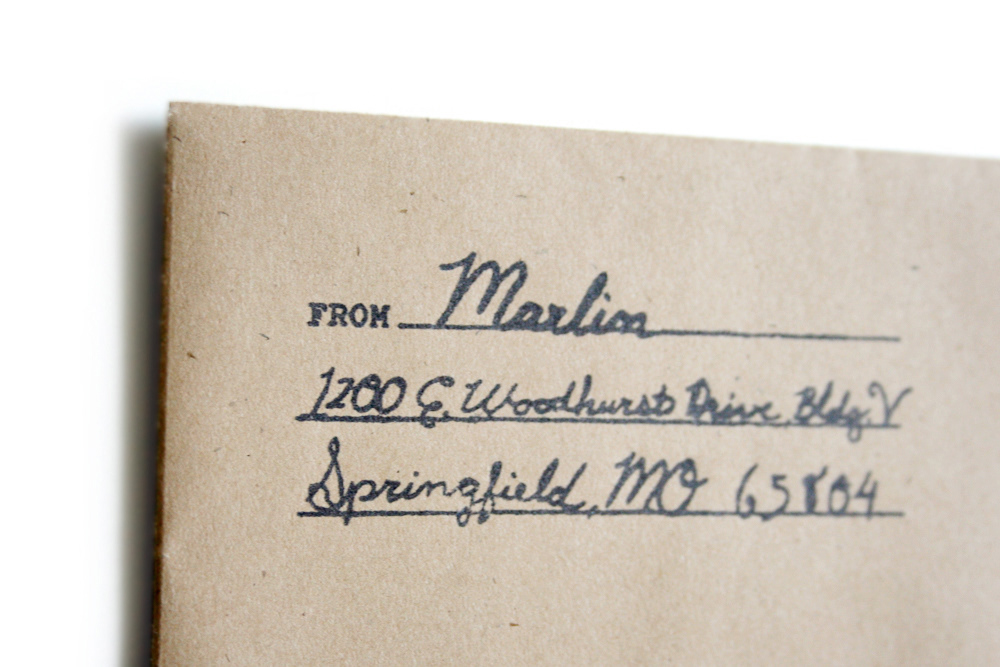 FROM Marlin
1200 E. Woodhurst Drive, Bldg. V
Springfield, MO 65804